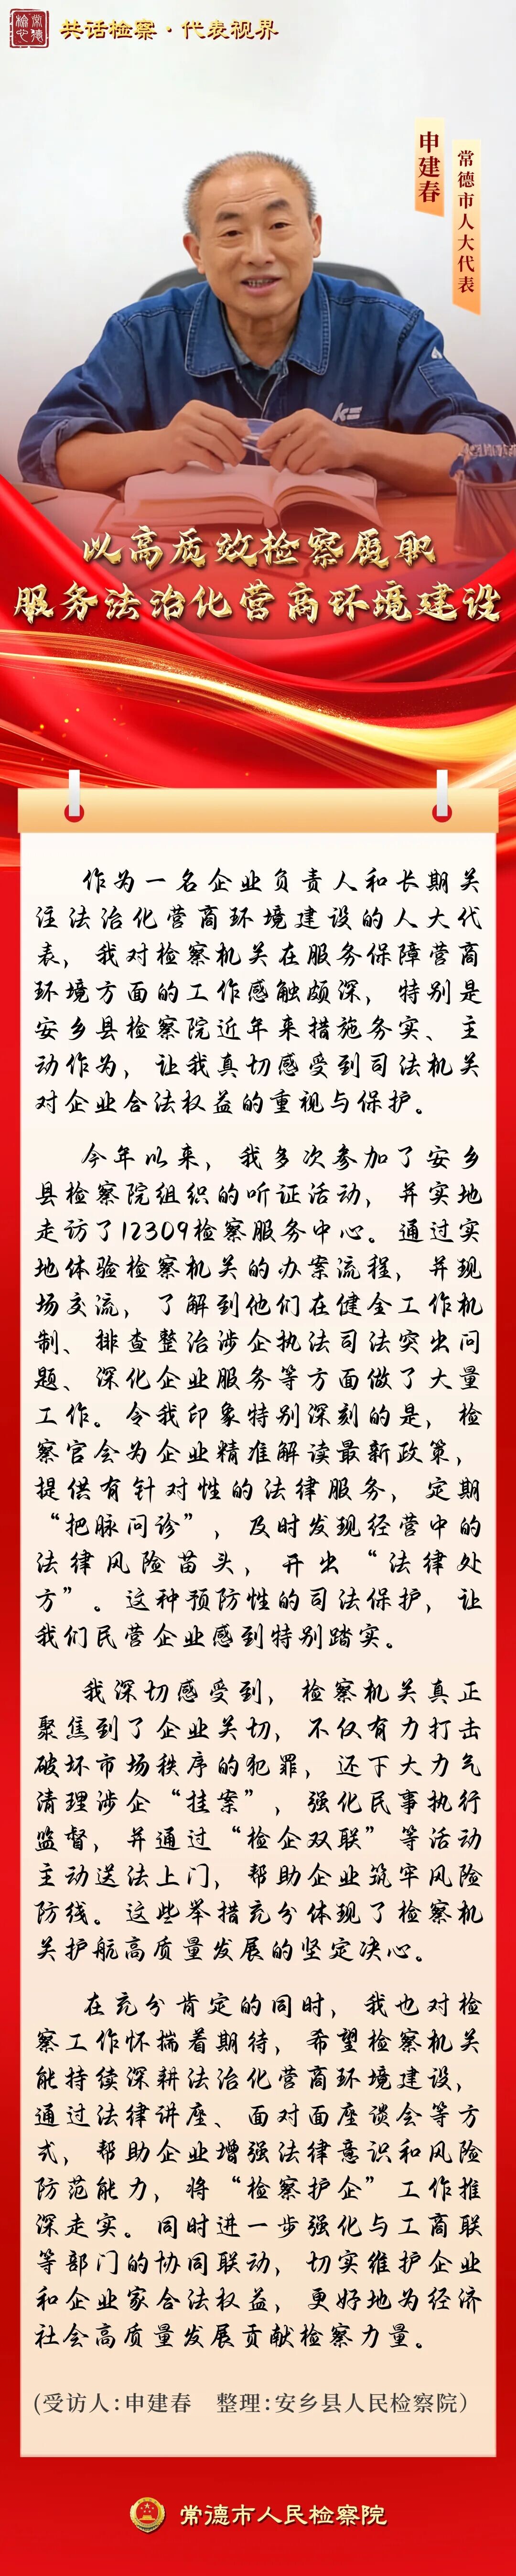 常德
检心
共话检察·代表视界
申建春
常德市人大代表
以高质效检察履职
服务法治化营商环境建设
作为一名企业负责人和长期关
注法治化营商环境建设的人大代
表，我对检察机关在服务保障营商
环境方面的工作感触颇深，特别是
安乡县检察院近年来措施务实、主
动作为，让我真切感受到司法机关
对企业合法权益的重视与保护。
今年以来，我多次参加了安乡
县检察院组织的听证活动，并实地
走访了12309检察服务中心。通过实
地体验检察机关的办案流程，并现
场交流，了解到他们在健全工作机
制、排查整治涉企执法司法突出问
题、深化企业服务等方面做了大量
工作。令我印象特别深刻的是，检
察官会为企业精准解读最新政策，
提供有针对性的法律服务，定期
“把脉问诊”，及时发现经营中的
法律风险苗头，开出“法律处
方”。这种预防性的司法保护，让
我们民营企业感到特别踏实。
我深切感受到，检察机关真正
聚焦到了企业关切，不仅有力打击
破坏市场秩序的犯罪，还下大力气
清理涉企“挂案”，强化民事执行
监督，并通过“检企双联”等活动
主动送法上门，帮助企业筑牢风险
防线。这些举措充分体现了检察机
关护航高质量发展的坚定决心。
在充分肯定的同时，我也对检
察工作怀揣着期待，希望检察机关
能持续深耕法治化营商环境建设，
通过法律讲座、面对面座谈会等方
式，帮助企业增强法律意识和风险
防范能力，将“检察护企”工作推
深走实。同时进一步强化与工商联
等部门的协同联动，切实维护企业
和企业家合法权益，更好地为经济
社会高质量发展贡献检察力量。
(受访人:申建春　整理:安乡县人民检察院)
常德市人民检察院